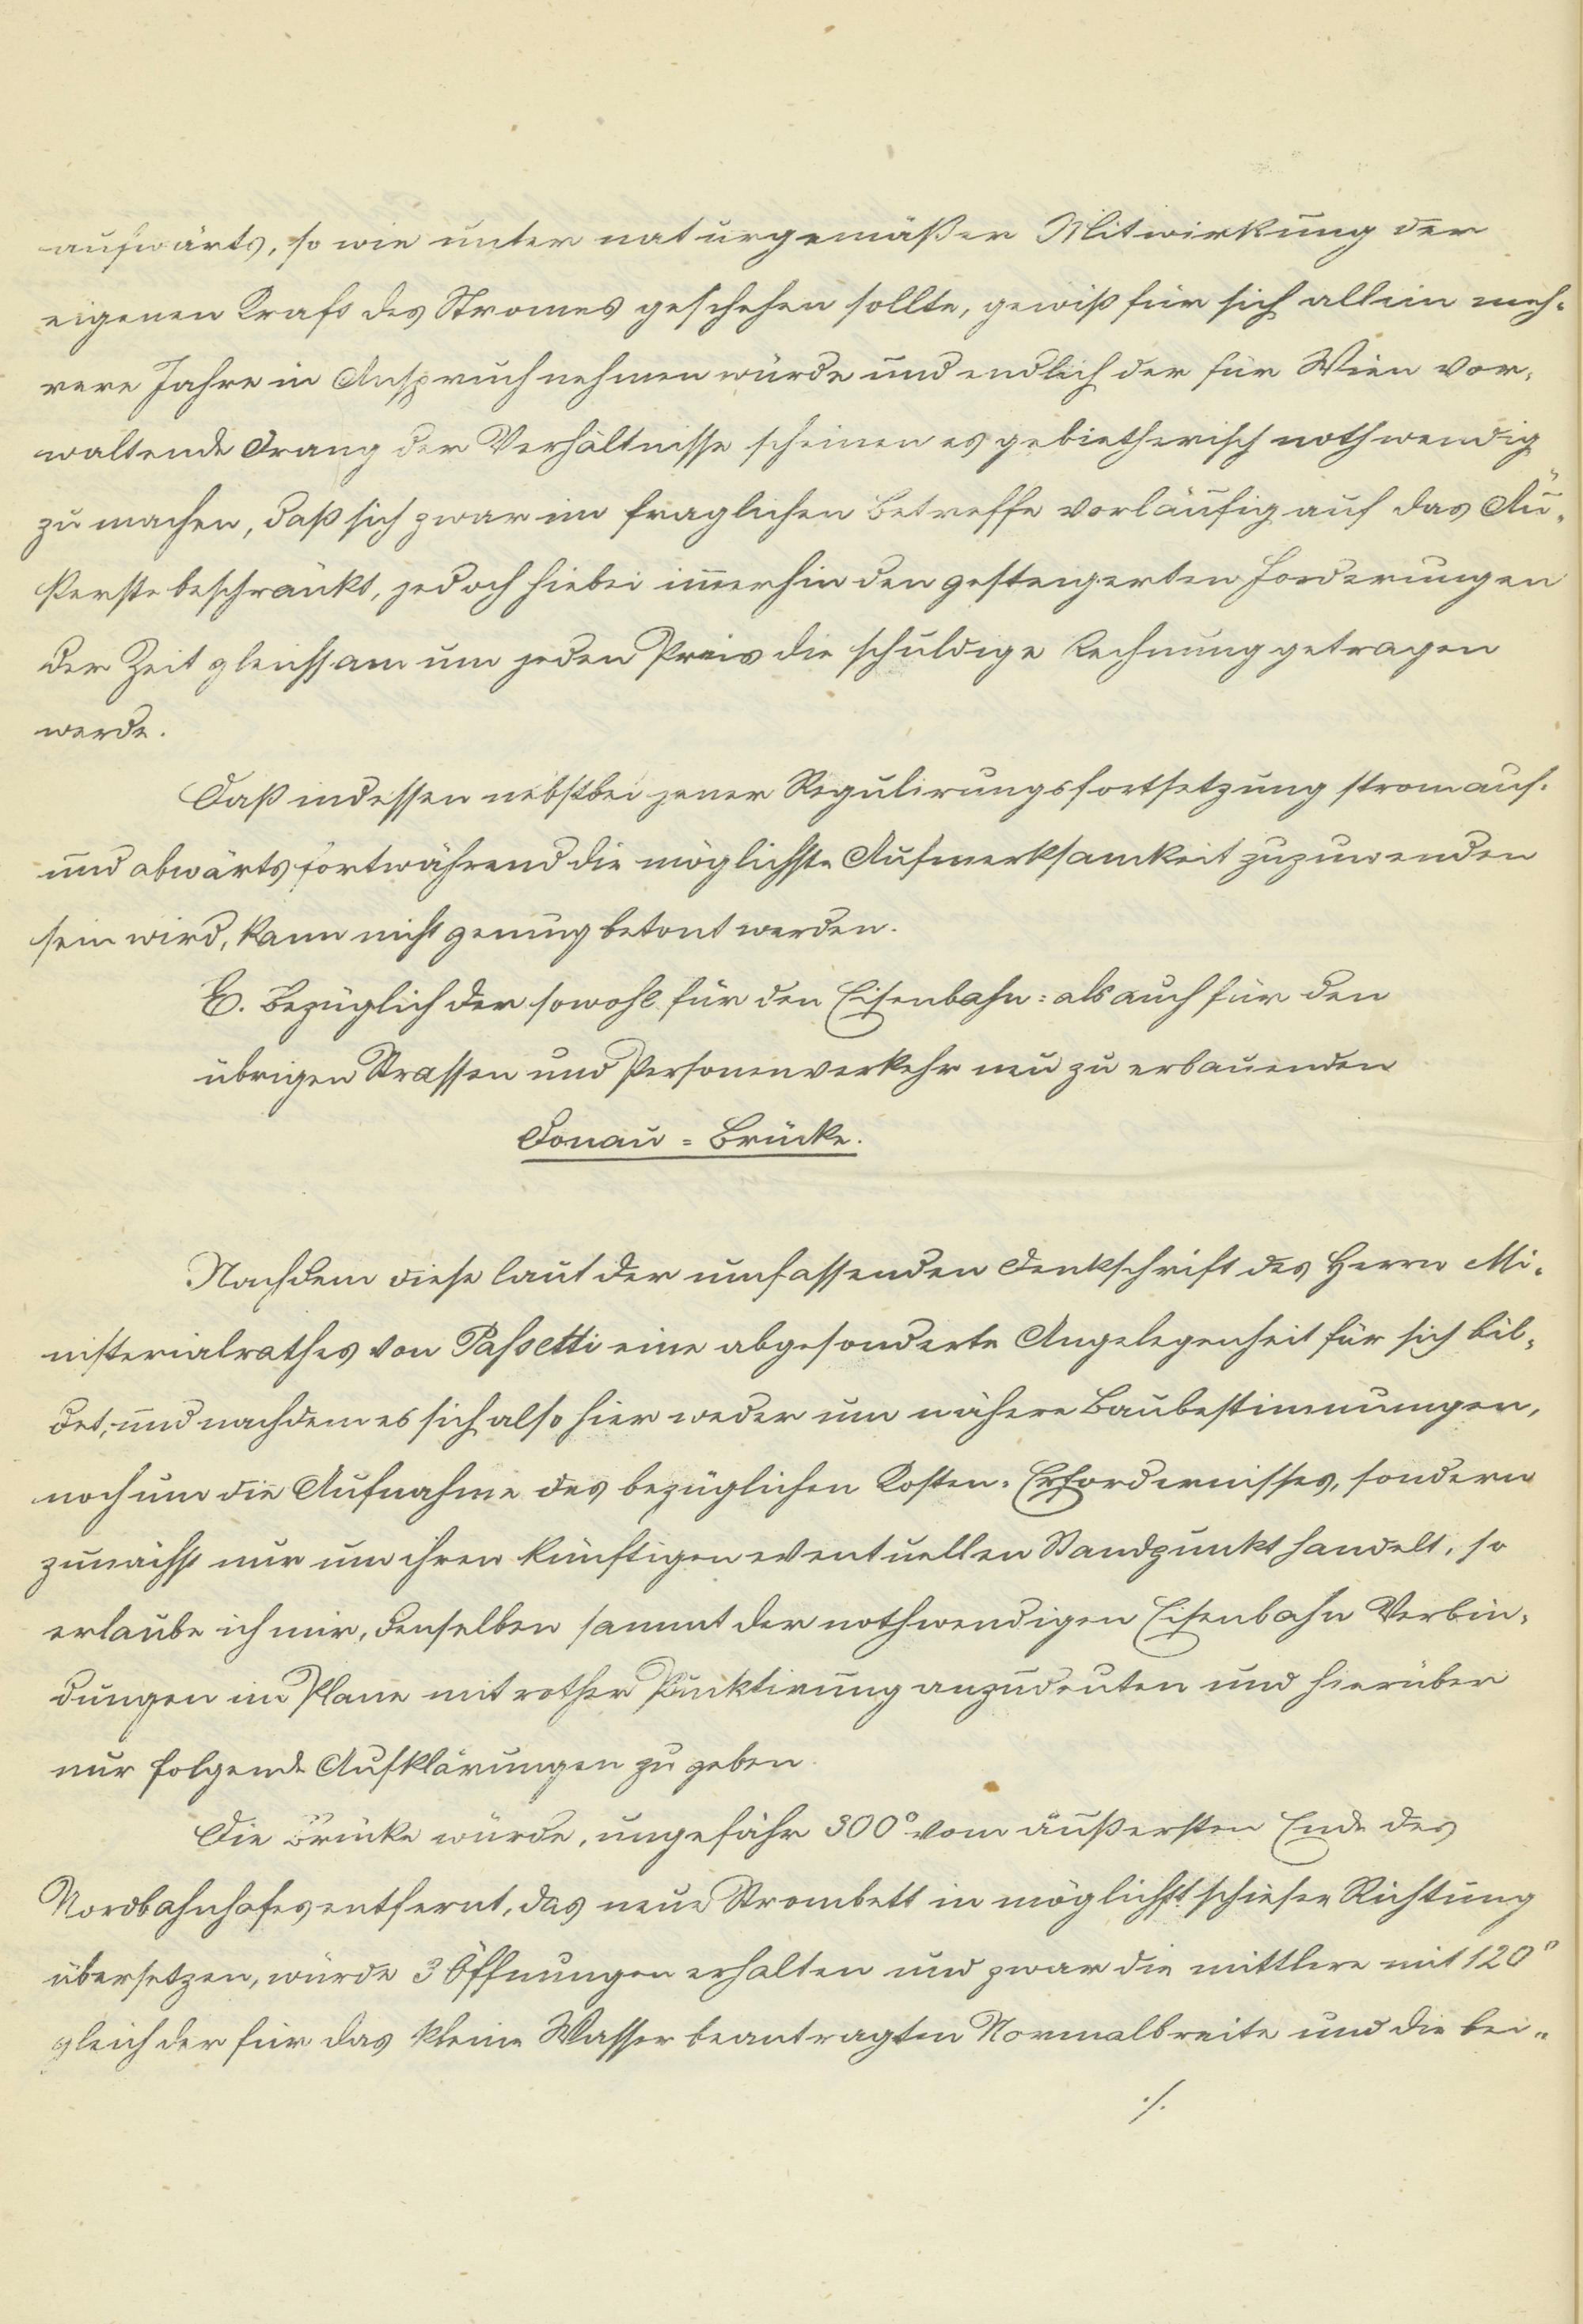 aufwärts, so wie unter naturgemäßer Mitwirkung der
eigenen Kraft des Stromes geschehen sollte, gewiß für sich allein meh-
rere Jahre in Anspruch nehmen würde und endlich der für Wien vor-
waltende Drang der Verhältnisse scheinen es gebietherisch nothwendig
zu machen, daß sich zwar im fraglichen Betreffe vorläufig auf das Äu-
ßerste beschränkt, jedoch hiebei im̅erhin den gesteigerten Forderungen
der Zeit gleichsam um jeden Preis die schuldige Rechnung getragen
werde.
Daß indessen nebstbei jener Regulirungsfortsetzung stromauf-
und abwärts fortwährend die möglichste Aufmerksamkeit zuzuwenden
sein wird, kann nicht genung betont werden.
E. Bezüglich der sowohl für den Eisenbahn= als auch für den
übrigen Strassen und Personenverkehr neu zu erbauenden
Donau=Brücke.
Nachdem diese laut der umfassenden Denkschrift des Herrn Mi-
nisterialrathes von Passetti eine abgesonderte Angelegenheit für sich bil-
det, und nachdem es sich also hier weder um nähere Baubestimmungen,
noch um die Aufnahme des bezüglichen Kosten-Erfordernisses, sondern
zunächst nur um ihren künftigen eventuellen Standpunkt handelt, so
erlaube ich mir, denselben sammt der nothwendigen Eisenbahn Verbin-
dungen im Plane mit rother Punktirung anzudeuten und hierüber
nur folgende Aufklärungen zu geben.
Die Brücke würde, ungefähr 300° vom äußersten Ende des
Nordbahnhofes entfernt, das neue Strombett in möglichst schiefer Richtung
übersetzen, würde 3 Öffnungen erhalten und zwar die mittlere mit 120°
gleich der für das kleine Wasser beantragten Normalbreite und die bei-
./.